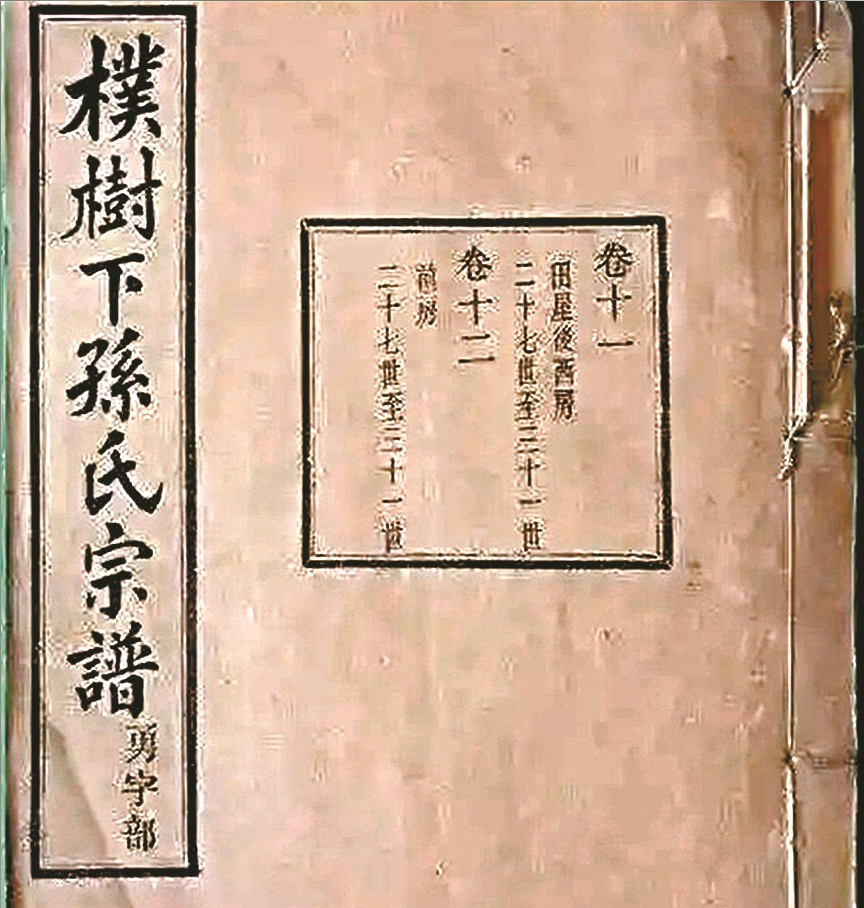 樸樹下孫氏宗譜
勇字部
卷十一
田屋後西房
二十七世至三十一世
卷十二
前房
二十七世至三十一世